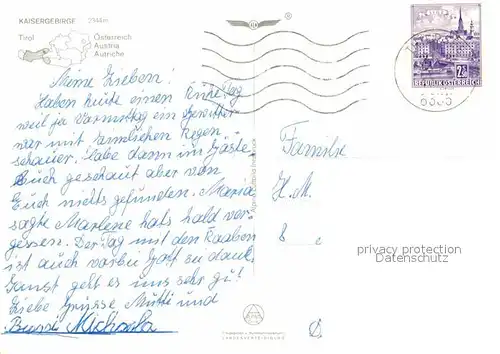 KAISERGEBIRGE 2344 m
Tirol
Österreich
Austria
Autriche
REPUBLIK ÖSTERREICH
Meine Lieben!
Haben heute einen
weil ja Vormittag ein Gewitter
war mit ziemlichen Regen-
schauer. Habe dann im Gäste
Buch geschaut aber von
Euch nichts gefunden. Maria
sagte Marlene hats hald ver-
gessen. Der Tag mit den
ist auch vorbei Gott sei dank.
Sonst geht es uns sehr gut!
Liebe Grüsse Mutti und
Bussi Michaela
Familie
H. M.
privacy protection
Datenschutz